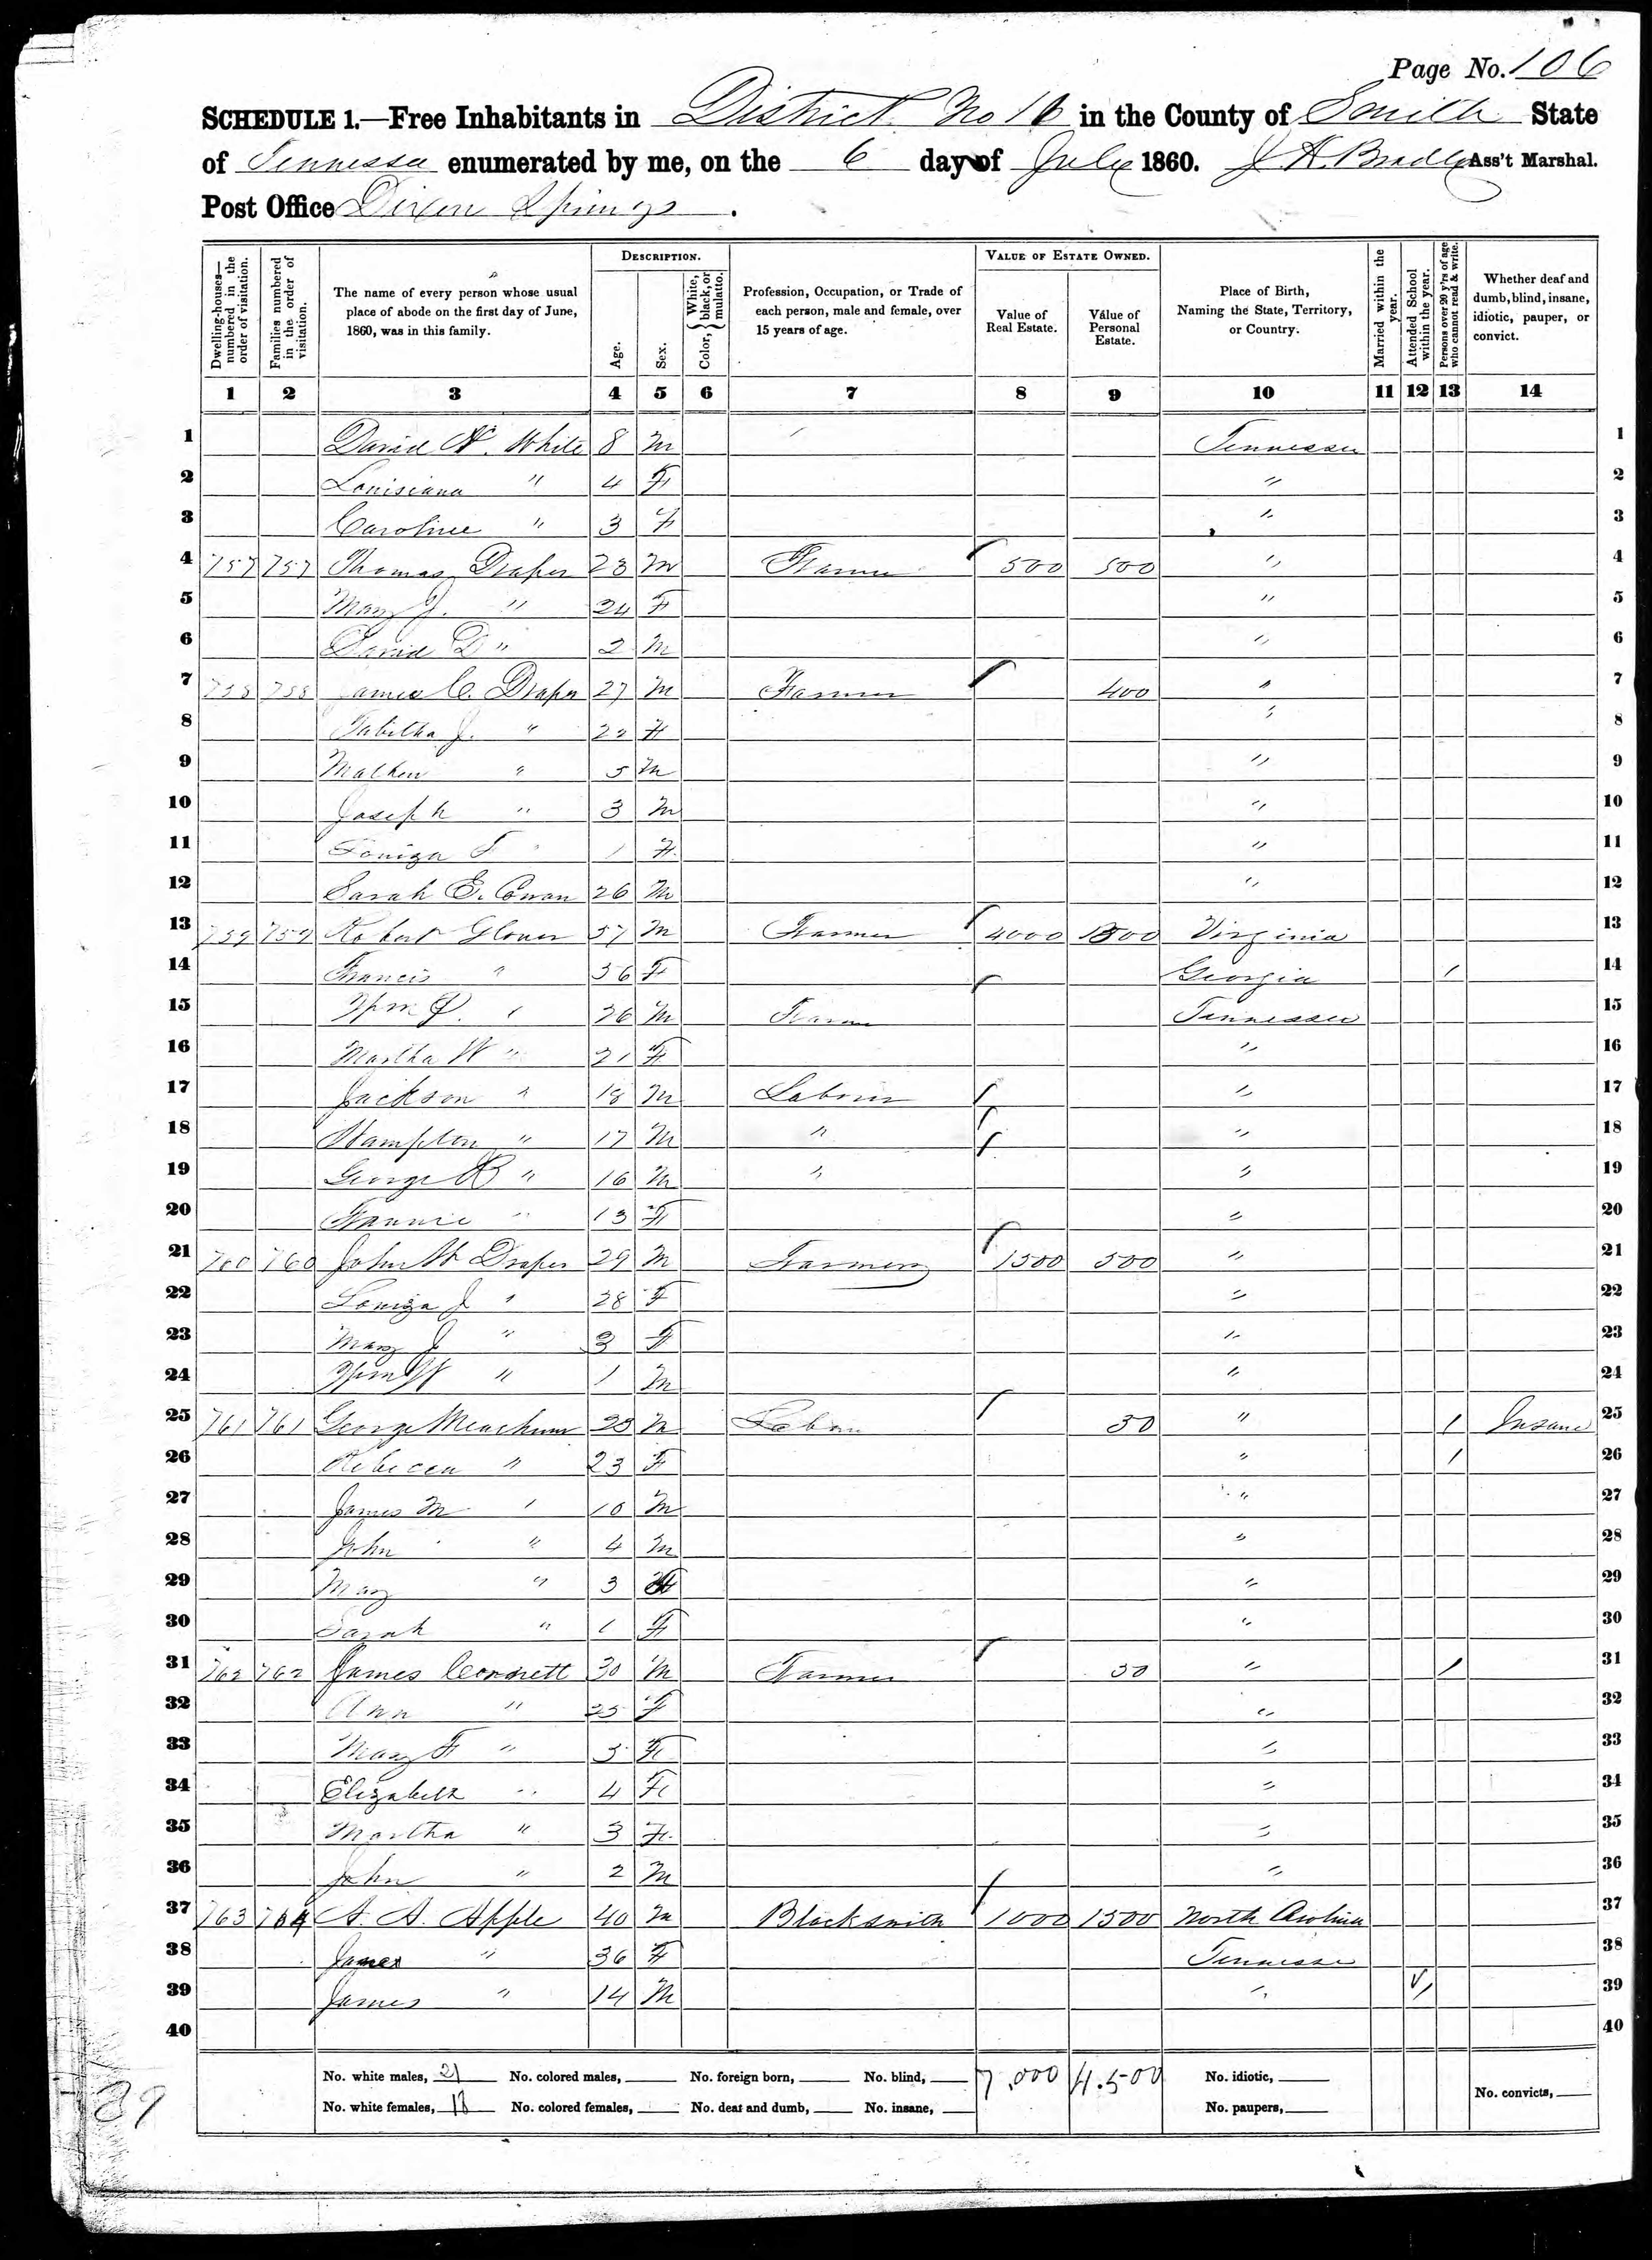 Page No. 106
SCHEDULE 1.—Free Inhabitants in District No 16 in the County of Smith State
of Tennessee enumerated by me, on the 6 day of July 1860. J H. Bradley Ass't Marshal.
Post Office Dixon Springs.
Dwelling-houses—numbered in the order of visitation.
Families numbered in the order of visitation.
The name of every person whose usual place of abode on the first day of June, 1860, was in this family.
DESCRIPTION.
Age.
Sex.
Color, { White, black, or mulatto.
Profession, Occupation, or Trade of each person, male and female, over 15 years of age.
VALUE OF ESTATE OWNED.
Value of Real Estate.
Value of Personal Estate.
Place of Birth, Naming the State, Territory, or Country.
Married within the year.
Attended School within the year.
Persons over 20 y'rs of age who cannot read & write.
Whether deaf and dumb, blind, insane, idiotic, pauper, or convict.
1 2 3 4 5 6 7 8 9 10 11 12 13 14
1 David N. White 8 M Tennessee 1
2 Louisiana " 4 F " 2
3 Caroline " 3 F " 3
4 757 757 Thomas Draper 23 M Farmer 500 500 " 4
5 Mary J. " 24 F " 5
6 David D " 2 M " 6
7 758 758 James C. Draper 27 M Farmer 400 " 7
8 Tabitha J. " 22 F " 8
9 Mathew " 5 M " 9
10 Joseph " 3 M " 10
11 Louiza F " 1 F " 11
12 Sarah E. Cowan 26 M " 12
13 759 759 Robert Glover 57 M Farmer 4000 1500 Virginia 13
14 Francis " 56 F Georgia / 14
15 Wm P. " 26 M Farmer Tennessee 15
16 Martha W " 21 F " 16
17 Jackson " 18 M Laborer " 17
18 Hampton " 17 M " " 18
19 George R " 16 M " " 19
20 Fannie " 13 F " 20
21 760 760 John W Draper 29 M Farmer 1500 500 " 21
22 Louiza J " 28 F " 22
23 Mary J " 3 F " 23
24 Wm W " 1 M " 24
25 761 761 George Meachum 25 M Labor 50 " / Insane 25
26 Rebecca " 23 F " / 26
27 James M " 10 M " 27
28 John " 4 M " 28
29 Mary " 3 F " 29
30 Sarah " 1 F " 30
31 762 762 James Cornett 30 M Farmer 50 " / 31
32 Ann " 25 F " 32
33 Mary F " 5 F " 33
34 Elizabeth " 4 F " 34
35 Martha " 3 F " 35
36 John " 2 M " 36
37 763 764 A. A. Apple 40 M Blacksmith 1000 1500 North Carolina 37
38 James " 36 F Tennessee 38
39 James " 14 M " / 39
40 40
No. white males, 21 No. colored males, No. foreign born, No. blind, 7,000 4.500 No. idiotic,
No. white females, 18 No. colored females, No. deaf and dumb, No. insane, No. paupers, No. convicts,
39